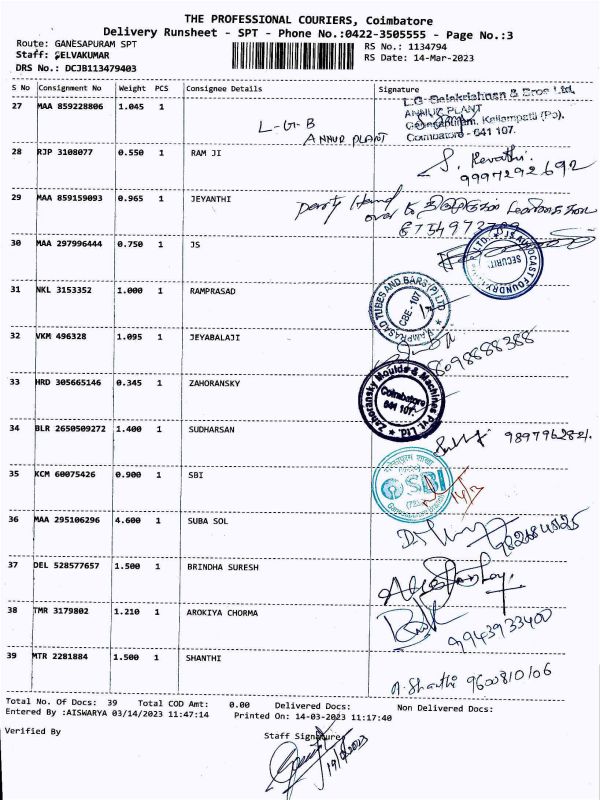 THE PROFESSIONAL COURIERS, Coimbatore
Delivery Runsheet - SPT - Phone No.:0422-3505555 - Page No.:3
Route: GANESAPURAM SPT
Staff: SELVAKUMAR
DRS No.: DCJB113479403
RS No.: 1134794
RS Date: 14-Mar-2023
S No Consignment No Weight PCS Consignee Details Signature
27 MAA 859228806 1.045 1
L-G-B
ANNUR PLANT
L.G. Balakrishnan & Bros Ltd,
ANNUR PLANT
Ganesapuram, Kattampatti (Po),
Coimbatore - 641 107.
28 RJP 3108077 0.550 1 RAM JI
S. Revathi.
9997292692
29 MAA 859159093 0.965 1 JEYANTHI
Party Hand
over
30 MAA 297996444 0.750 1 JS
JS AUTOCAST FOUNDRY
SECURITY
31 NKL 3153352 1.000 1 RAMPRASAD
RAMPRASAD TUBES AND BARS (P) LTD
CBE-107
32 VKM 496328 1.095 1 JEYABALAJI
8098888388
33 HRD 305665146 0.345 1 ZAHORANSKY
Zahoransky Moulds & Machines Pvt. Ltd.
Coimbatore
641 107.
34 BLR 2650509272 1.400 1 SUDHARSAN
9897962821.
35 KCM 60075426 0.900 1 SBI
SBI
36 MAA 295106296 4.600 1 SUBA SOL
37 DEL 528577657 1.500 1 BRINDHA SURESH
38 TMR 3179802 1.210 1 AROKIYA CHORMA
9943933400
39 MTR 2281884 1.500 1 SHANTHI
A. Shanthi 9600810106
Total No. Of Docs: 39 Total COD Amt: 0.00 Delivered Docs: Non Delivered Docs:
Entered By :AISWARYA 03/14/2023 11:47:14 Printed On: 14-03-2023 11:17:40
Verified By Staff Signature